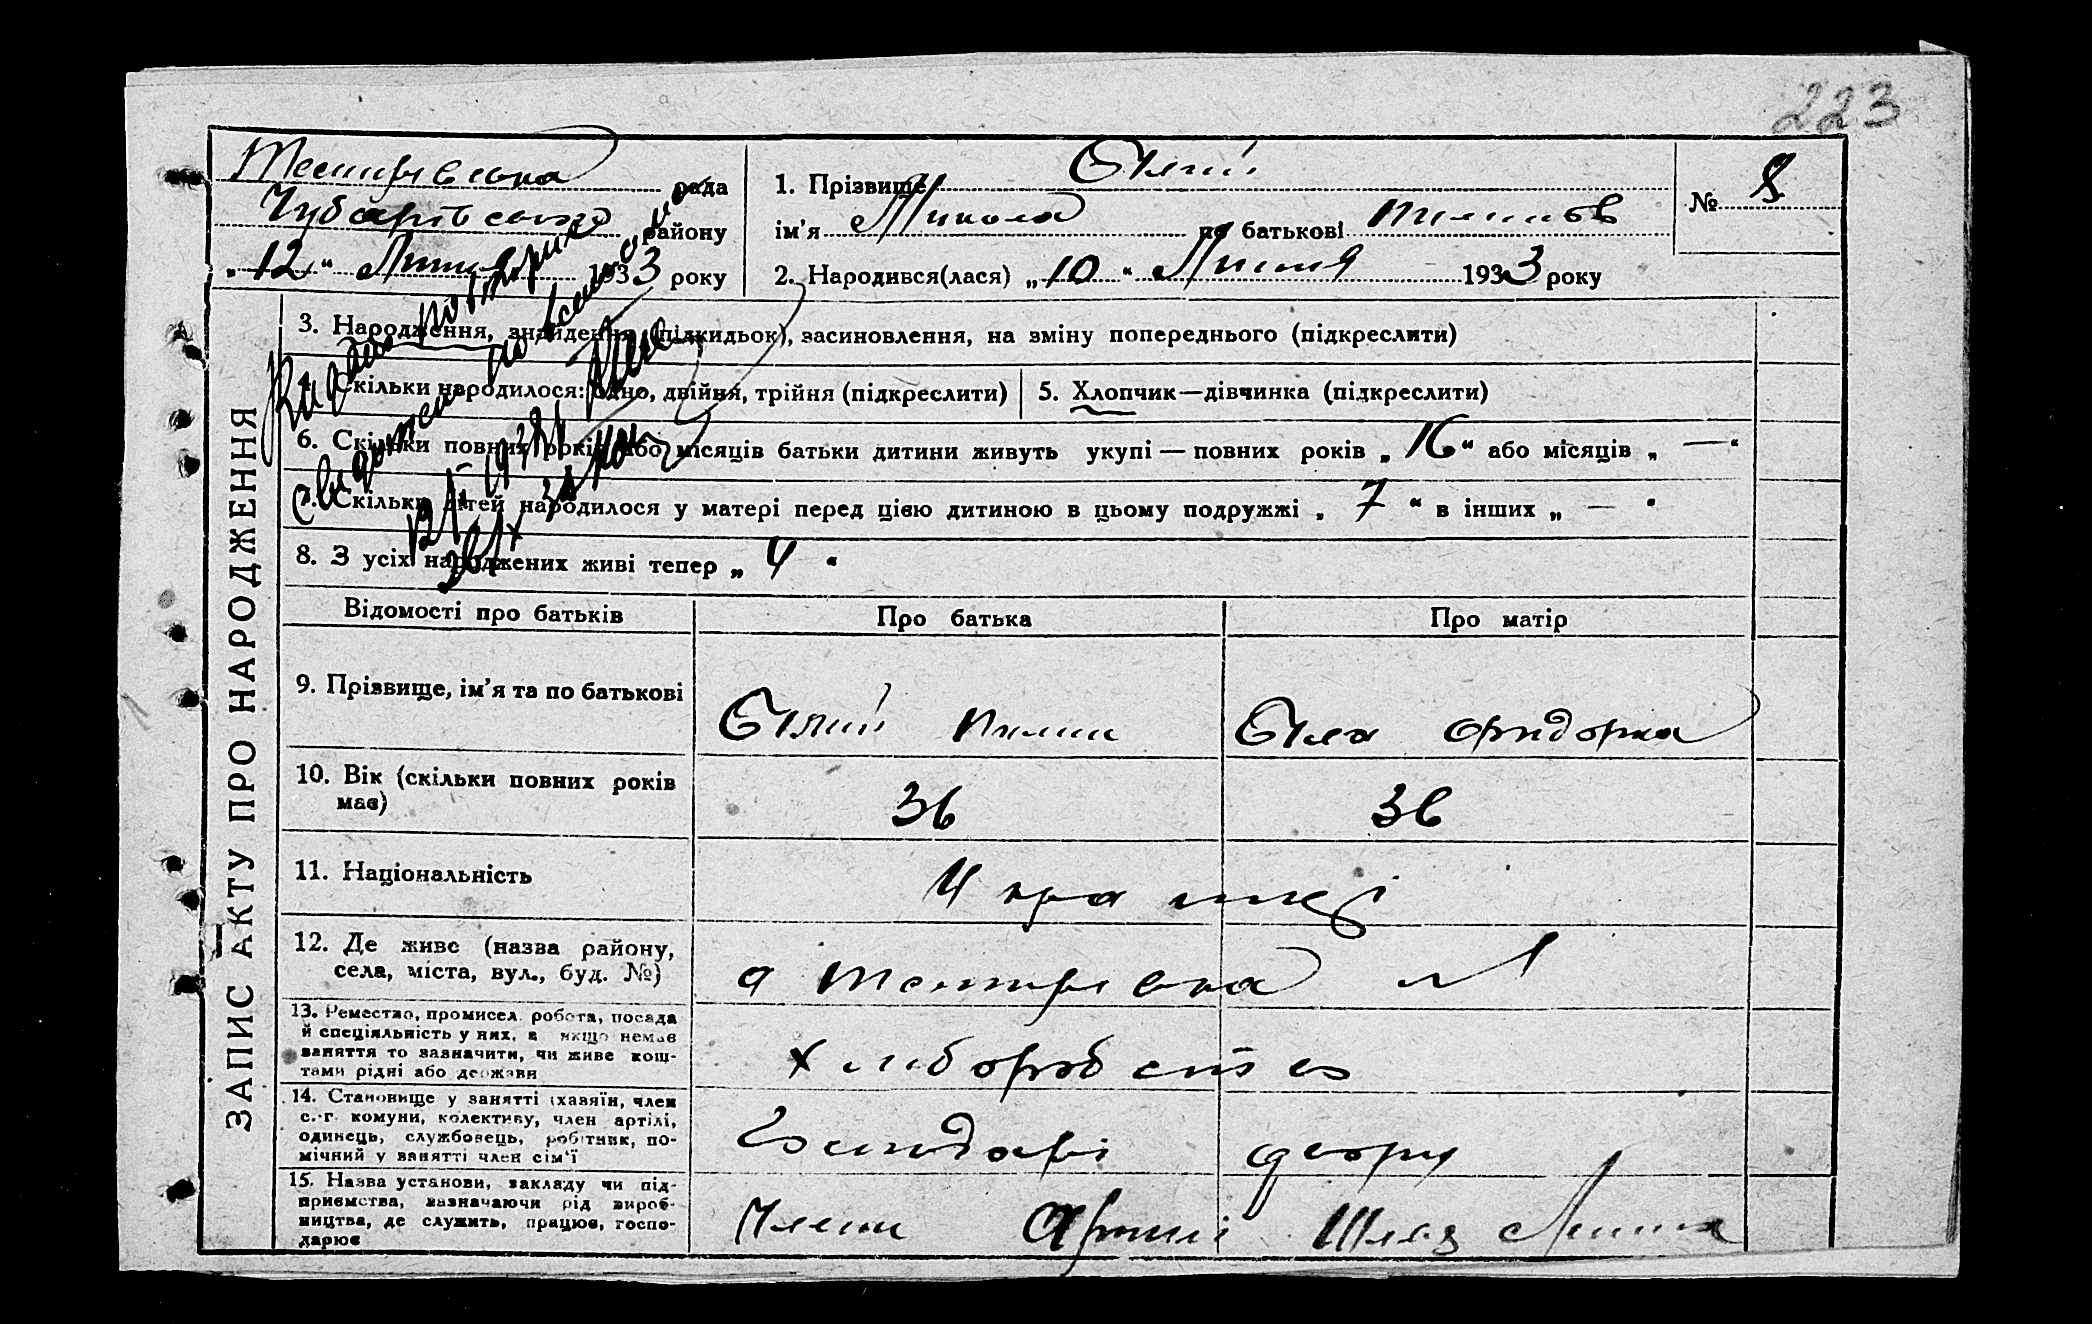 223
рада
району
„ 12 “ 1933 року
1. Прізвище Білий
ім’я Микола по батькові Пилипов
2. Народився(лася) „ 10 “ Липня 1933 року
№ 8
ЗАПИС АКТУ ПРО НАРОДЖЕННЯ
3. Народження, знайдення (підкидьок), засиновлення, на зміну попереднього (підкреслити)
Скільки народилося: одно, двійня, трійня (підкреслити)
5. Хлопчик—дівчинка (підкреслити)
6. Скільки повних років або місяців батьки дитини живуть укупі — повних років „ 16 “ або місяців „ — “
7. Скільки дітей народилося у матері перед цією дитиною в цьому подружжі „ 7 “ в інших „ — “
8. З усіх народжених живі тепер „ 4 “
Відомості про батьків
Про батька
Про матір
9. Прізвище, ім’я та по батькові
Білий Пилип
Біла
10. Вік (скільки повних років
має)
36
36
11. Національність
12. Де живе (назва району,
села, міста, вул., буд. №)
13. Ремество, промисел, робота, посада
й спеціяльність у них, а якщо немає
заняття то зазначити, чи живе кош-
тами рідні або держави
14. Становище у занятті (хазяїн, член
с.-г. комуни, колективу, член артілі,
одинець, службовець, робітник, по-
мічний у занятті член сім’ї
Господарі двору
15. Назва установи, закладу чи під-
приємства, зазначаючи рід вироб-
ництва, де служить, працює, госпо-
дарює
Члени Артілі Шлях